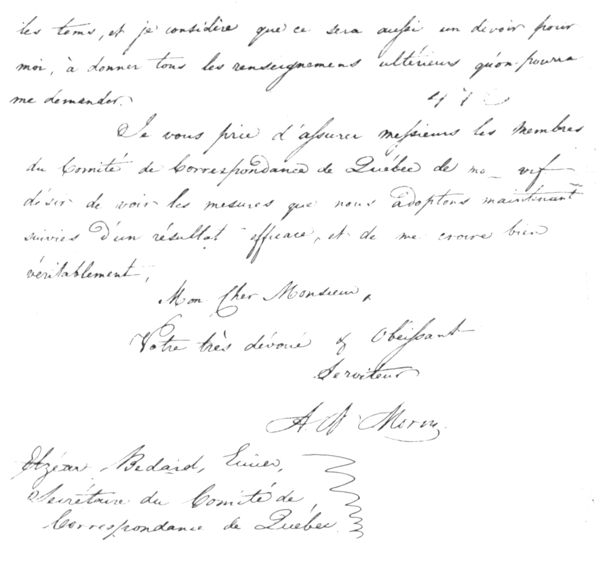 les tems, et je considère que ce sera aussi un devoir pour
moi, à donner tous les renseignemens ultérieurs qu'on pourra
me demander.
Je vous prie d'assurer messieurs les Membres
du Comité de Correspondance de Québec de mon vif
désir de voir les mesures que nous adoptons maintenant
suivies d'un résultat efficace, et de me croire bien
véritablement,
Mon Cher Monsieur,
Votre très dévoué & Obéissant
Serviteur
A N Morin
Elzéar Bedard, Ecuier,
Secrétaire du Comité de
Correspondance de Québec